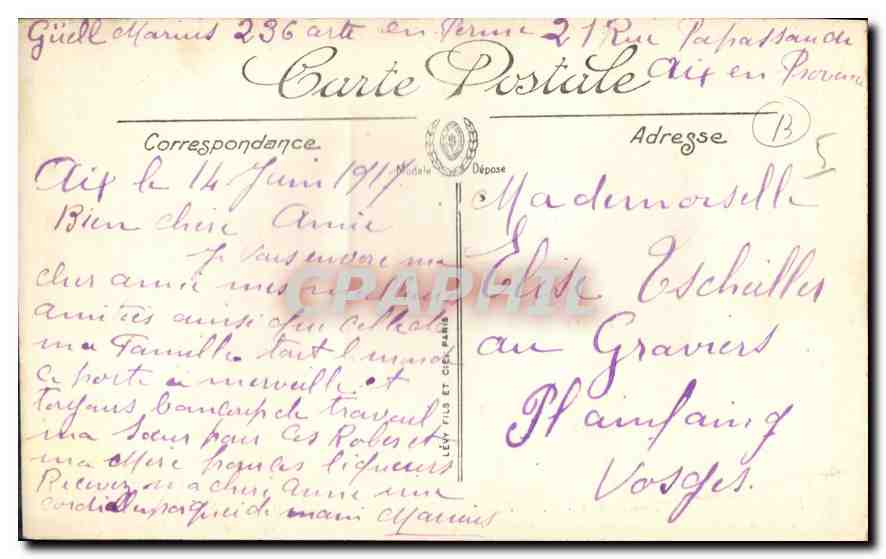 Güell Marius 236 arte en Perm 21 Rue Papassaudi
Aix en Provence
Carte Postale
B
Correspondance
Adresse
5
Modèle Déposé
Aix le 14 Juin 1917
Bien chere Amie
Je vais encore ma
cher amie mes
amities ainsi que celle de
ma Famille tout le monde
ce porte a merveille et
toujours baucoup de travail
ma Sœur pour les Robes et
ma Mère pour les liqueurs
Recevez ma chere Amie une
cordiale poignée de main Marius
LÉVY FILS ET CIE, PARIS
Mademoiselle
Elise Escheiller
au Graviers
Plainfaing
Vosges.
CPAPHIL